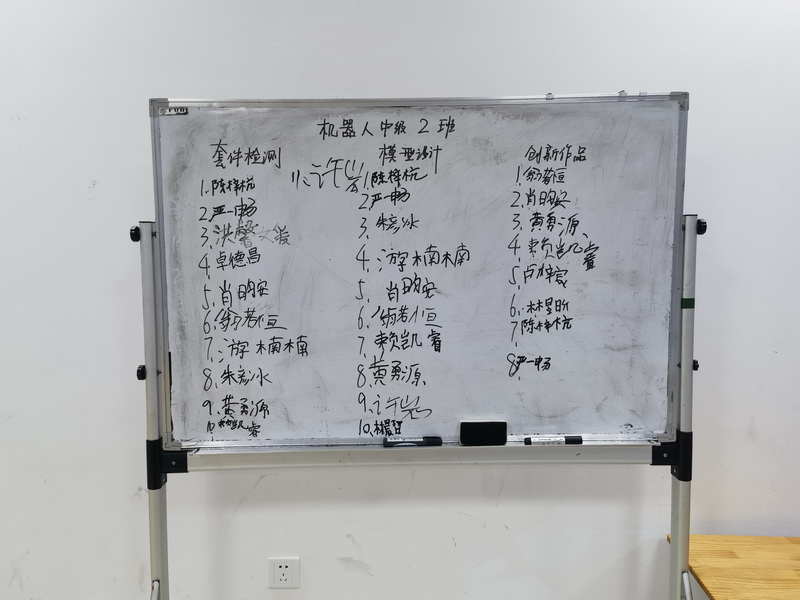 机器人中级2班
套件检测
1.陈梓杭
2.严一畅
3.洪馨
4.卓德昌
5.肖昀安
6.翁若恒
7.游楠楠
8.朱彦冰
9.黄勇源
10.赖凯睿
11.许
模型设计
1.陈梓杭
2.严一畅
3.朱彦冰
4.游楠楠
5.肖昀安
6.翁若恒
7.赖凯睿
8.黄勇源
9.许
10.林星昕
创新作品
1.翁若恒
2.肖昀安
3.黄勇源
4.赖凯睿
5.卢梓宸
6.林星昕
7.陈梓杭
8.严一畅